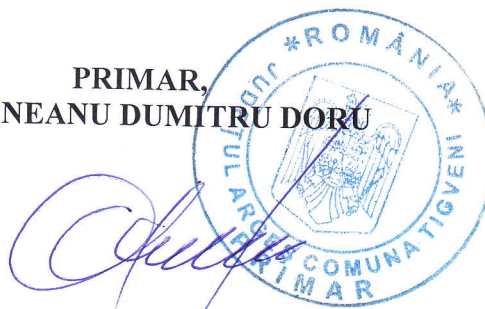 PRIMAR,
NEANU DUMITRU DORU
*ROMÂNIA*
JUDEȚUL ARGEȘ COMUNA TIGVENI
PRIMAR